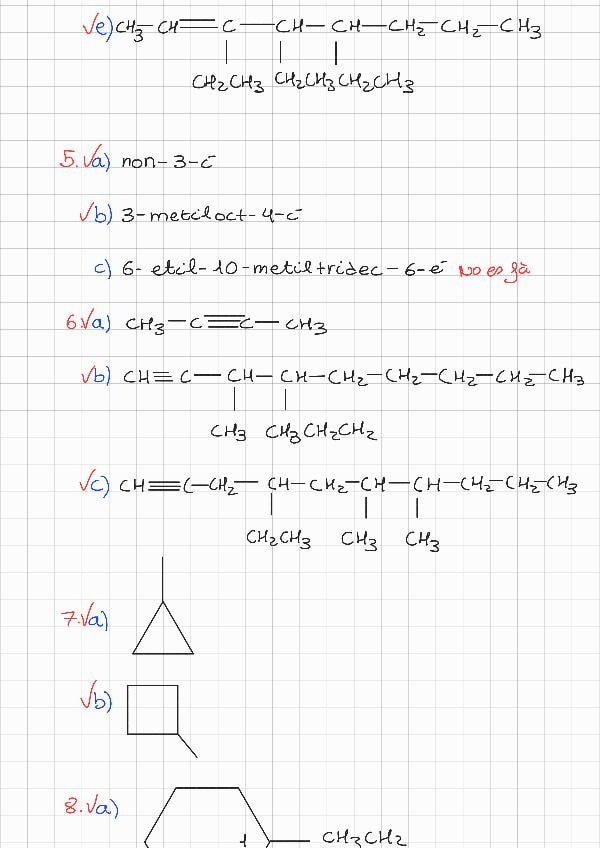 √e) CH3—CH═C—CH—CH—CH2—CH2—CH3
CH2CH3 CH2CH3 CH2CH3
5.√a) non-3-ē
√b) 3-metiloct-4-ē
c) 6-etil-10-metiltridec-6-ē
6√a) CH3—C≡C—CH3
√b) CH≡C—CH—CH—CH2—CH2—CH2—CH2—CH3
CH3 CH3CH2CH2
√c) CH≡C—CH2—CH—CH2—CH—CH—CH2—CH2—CH3
CH2CH3 CH3 CH3
7.√a)
√b)
8.√a)
1 — CH3CH2